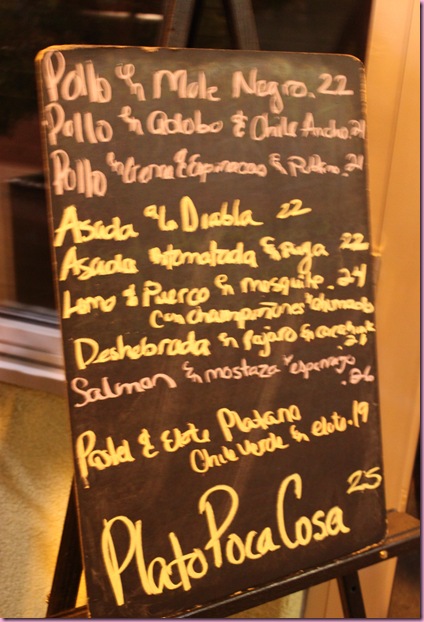 Pollo en Mole Negro. 22
Pollo en adobo & Chile Ancho. 21
Pollo en Crema & Espinacas & 21
Asada a la Diabla 22
Asada entomatada en 22
Lomo & Puerco en mesquite. 24
con champiñones
Deshebrada en Pajaro en 21
Salmon en mostaza y esparrago
.26
Pastel & Elote Platano
Chile Verde en elote. 19
Plato Poca Cosa 25